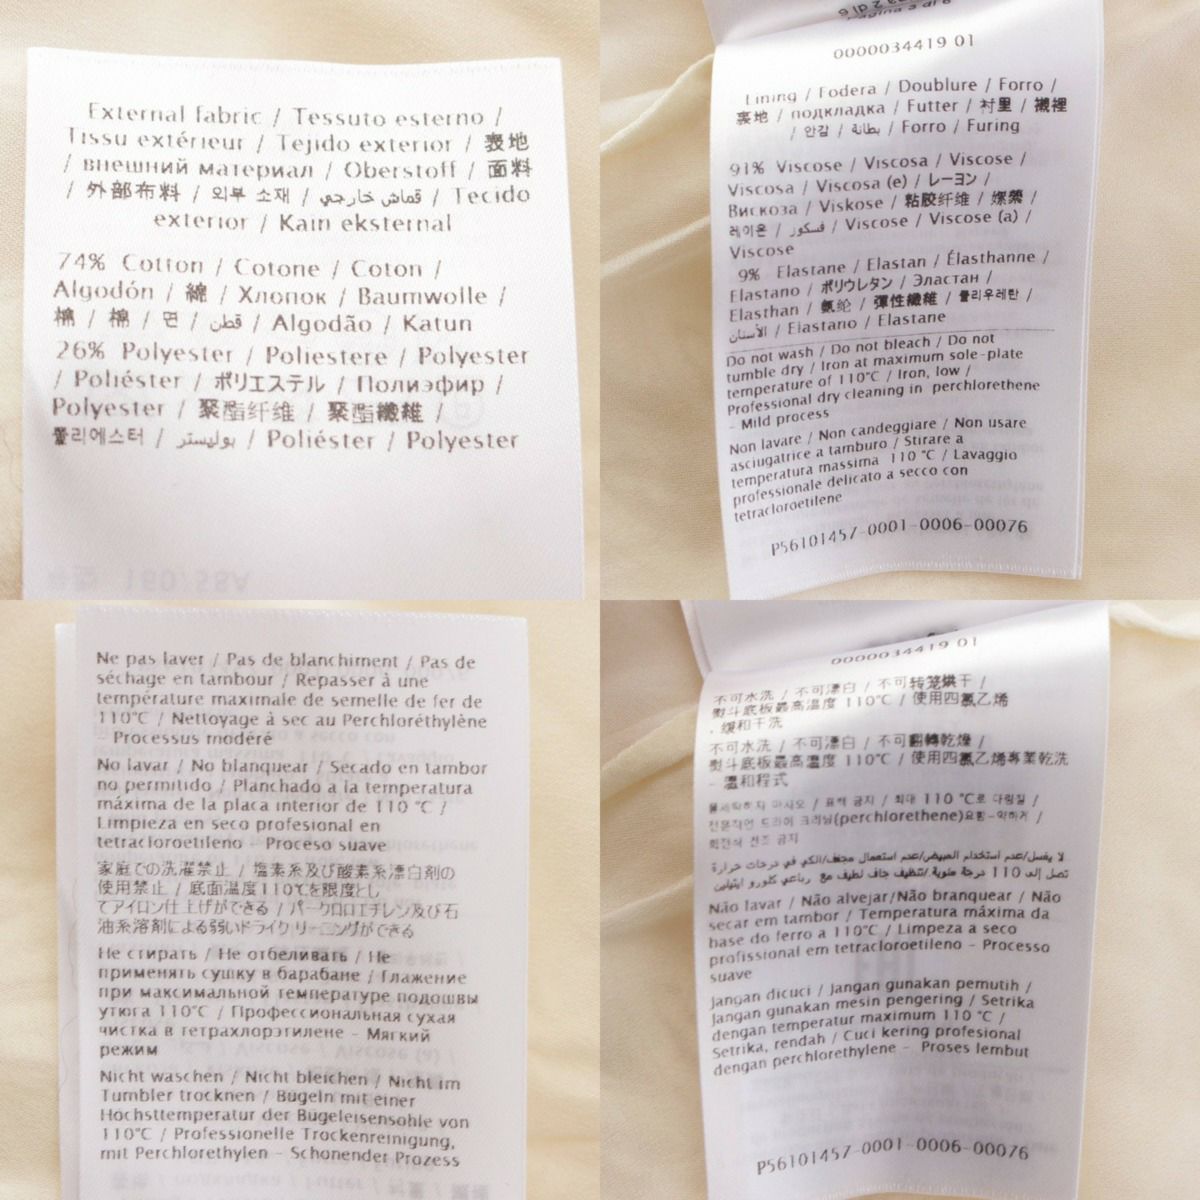 External fabric / Tessuto esterno /
Tissu extérieur / Tejido exterior / 表地
/ внешний материал / Oberstoff / 面料
/ 外部布料 / 외부 소재 / قماش خارجي / Tecido
exterior / Kain eksternal
74% Cotton / Cotone / Coton /
Algodón / 綿 / Хлопок / Baumwolle /
棉 / 棉 / 면 / قطن / Algodão / Katun
26% Polyester / Poliestere / Polyester
/ Poliéster / ポリエステル / Полиэфир /
Polyester / 聚酯纤维 / 聚酯纖維 /
폴리에스터 / بوليستر / Poliéster / Polyester
Pagina 3 di 6
0000034419 01
Lining / Fodera / Doublure / Forro /
裏地 / подкладка / Futter / 衬里 / 襯裡
/ 안감 / بطانة / Forro / Furing
91% Viscose / Viscosa / Viscose /
Viscosa / Viscosa (e) / レーヨン /
Вискоза / Viskose / 粘胶纤维 / 嫘縈 /
레이온 / فسكوز / Viscose / Viscose (a) /
Viscose
9% Elastane / Elastan / Élasthanne /
Elastano / ポリウレタン / Эластан /
Elasthan / 氨纶 / 彈性纖維 / 폴리우레탄 /
الأستان / Elastano / Elastane
Do not wash / Do not bleach / Do not
tumble dry / Iron at maximum sole-plate
temperature of 110°C / Iron, low /
Professional dry cleaning in perchlorethene
- Mild process
Non lavare / Non candeggiare / Non usare
asciugatrice a tamburo / Stirare a
temperatura massima 110 °C / Lavaggio
professionale delicato a secco con
tetracloroetilene
P56101457-0001-0006-00076
Ne pas laver / Pas de blanchiment / Pas de
séchage en tambour / Repasser à une
température maximale de semelle de fer de
110°C / Nettoyage à sec au Perchloréthylène
- Processus modéré
No lavar / No blanquear / Secado en tambor
no permitido / Planchado a la temperatura
máxima de la placa interior de 110 °C /
Limpieza en seco profesional en
tetracloroetileno - Proceso suave
家庭での洗濯禁止 / 塩素系及び酸素系漂白剤の
使用禁止 / 底面温度110℃を限度とし
てアイロン仕上げができる / パークロロエチレン及び石
油系溶剤による弱いドライクリーニングができる
Не стирать / Не отбеливать / Не
применять сушку в барабане / Глажение
при максимальной температуре подошвы
утюга 110°C / Профессиональная сухая
чистка в тетрахлорэтилене - Мягкий
режим
Nicht waschen / Nicht bleichen / Nicht im
Tumbler trocknen / Bügeln mit einer
Höchsttemperatur der Bügeleisensohle von
110°C / Professionelle Trockenreinigung,
mit Perchlorethylen - Schonender Prozess
0000034419 01
不可水洗 / 不可漂白 / 不可转笼烘干 /
熨斗底板最高温度 110°C / 使用四氯乙烯
- 缓和干洗
不可水洗 / 不可漂白 / 不可翻轉乾燥 /
熨斗底板最高溫度 110°C / 使用四氯乙烯專業乾洗
- 溫和程式
물세탁하지 마시오 / 표백 금지 / 최대 110 °C로 다림질 /
전문적인 드라이 크리닝(perchlorethene)요함-약하게 /
회전식 건조 금지
لا يغسل/عدم استخدام المبيض/عدم استعمال مجفف/الكي في درجات حرارة
تصل إلى 110 درجة مئوية /تنظيف جاف لطيف مع رباعي كلورو ايثيلين
Não lavar / Não alvejar/Não branquear / Não
secar em tambor / Temperatura máxima da
base do ferro a 110°C / Limpeza a seco
profissional em tetracloroetileno - Processo
suave
Jangan dicuci / Jangan gunakan pemutih /
Jangan gunakan mesin pengering / Setrika
dengan temperatur maximum 110 °C /
Setrika, rendah / Cuci kering profesional
dengan perchlorethylene - Proses lembut
P56101457-0001-0006-00076